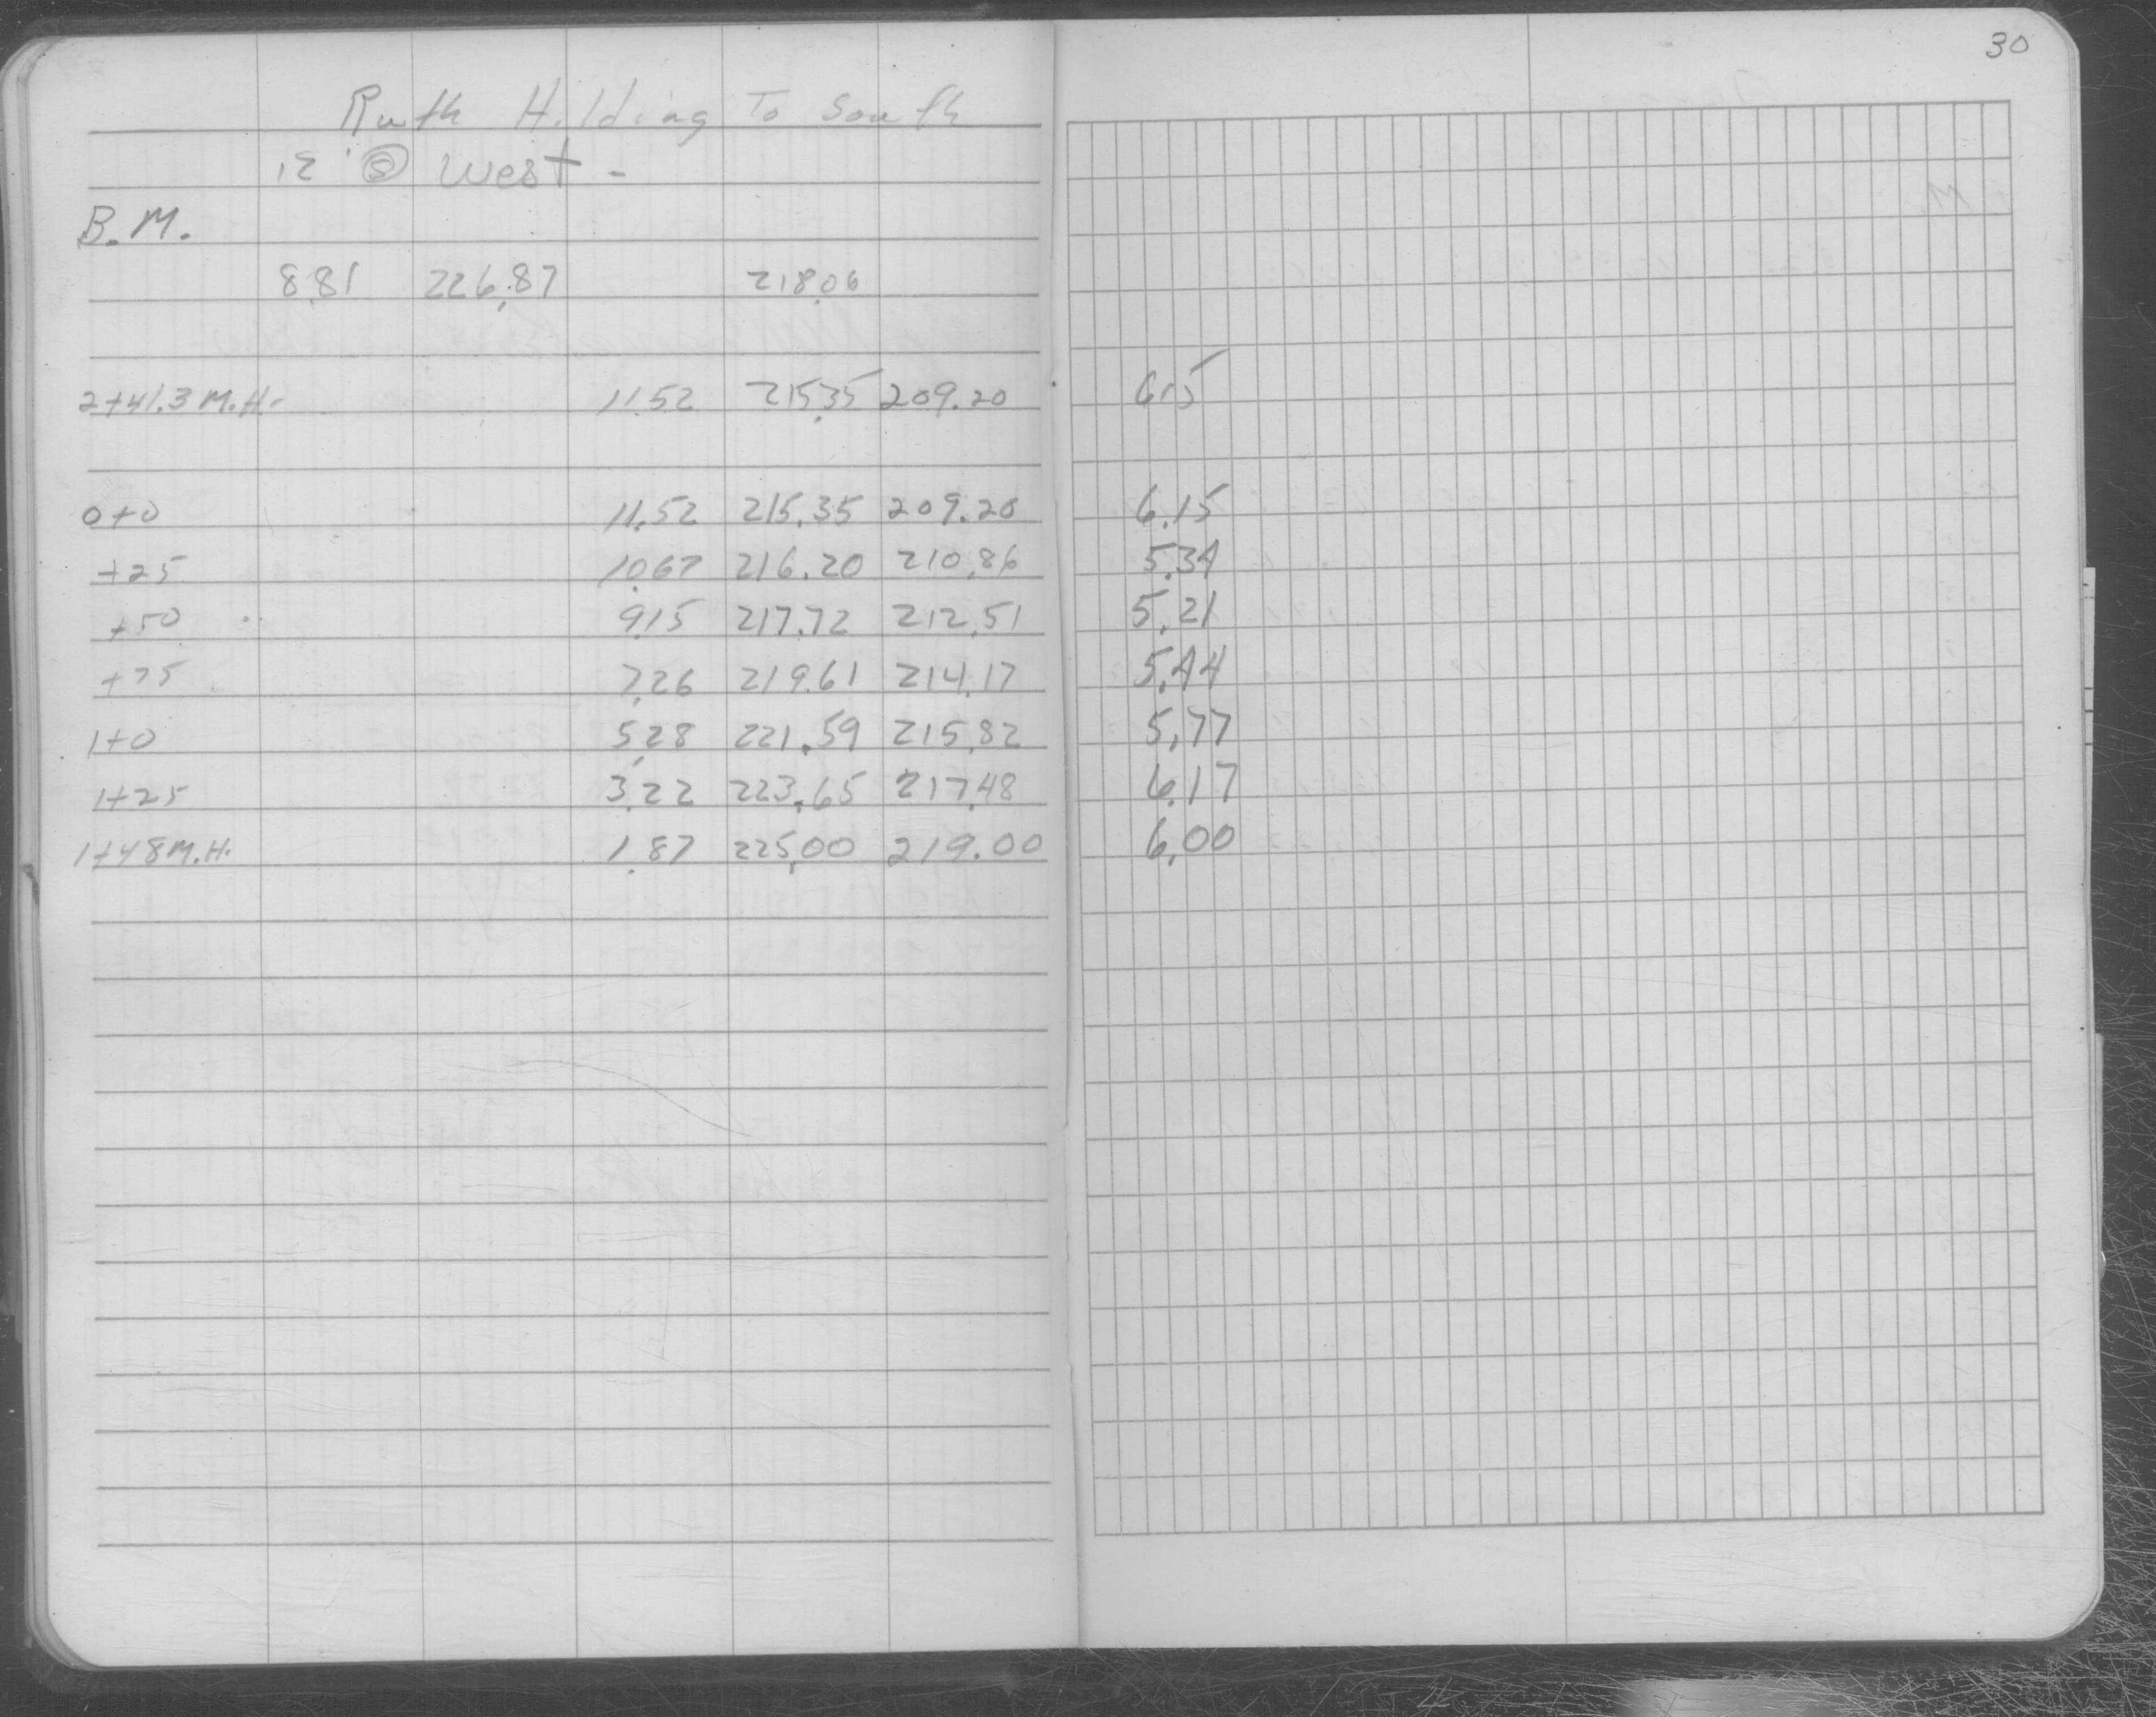 30
Ruth Holding To South
12' Ⓢ West -
B.M.
8.81 226.87 218.06
2+41.3 M.H. 11.52 215.35 209.20 6.15
0+0 11.52 215.35 209.20 6.15
+25 10.67 216.20 210.86 5.34
+50 9.15 217.72 212.51 5.21
+75 7.26 219.61 214.17 5.44
1+0 5.28 221.59 215.82 5.77
1+25 3.22 223.65 217.48 6.17
1+48 M.H. 1.87 225.00 219.00 6.00